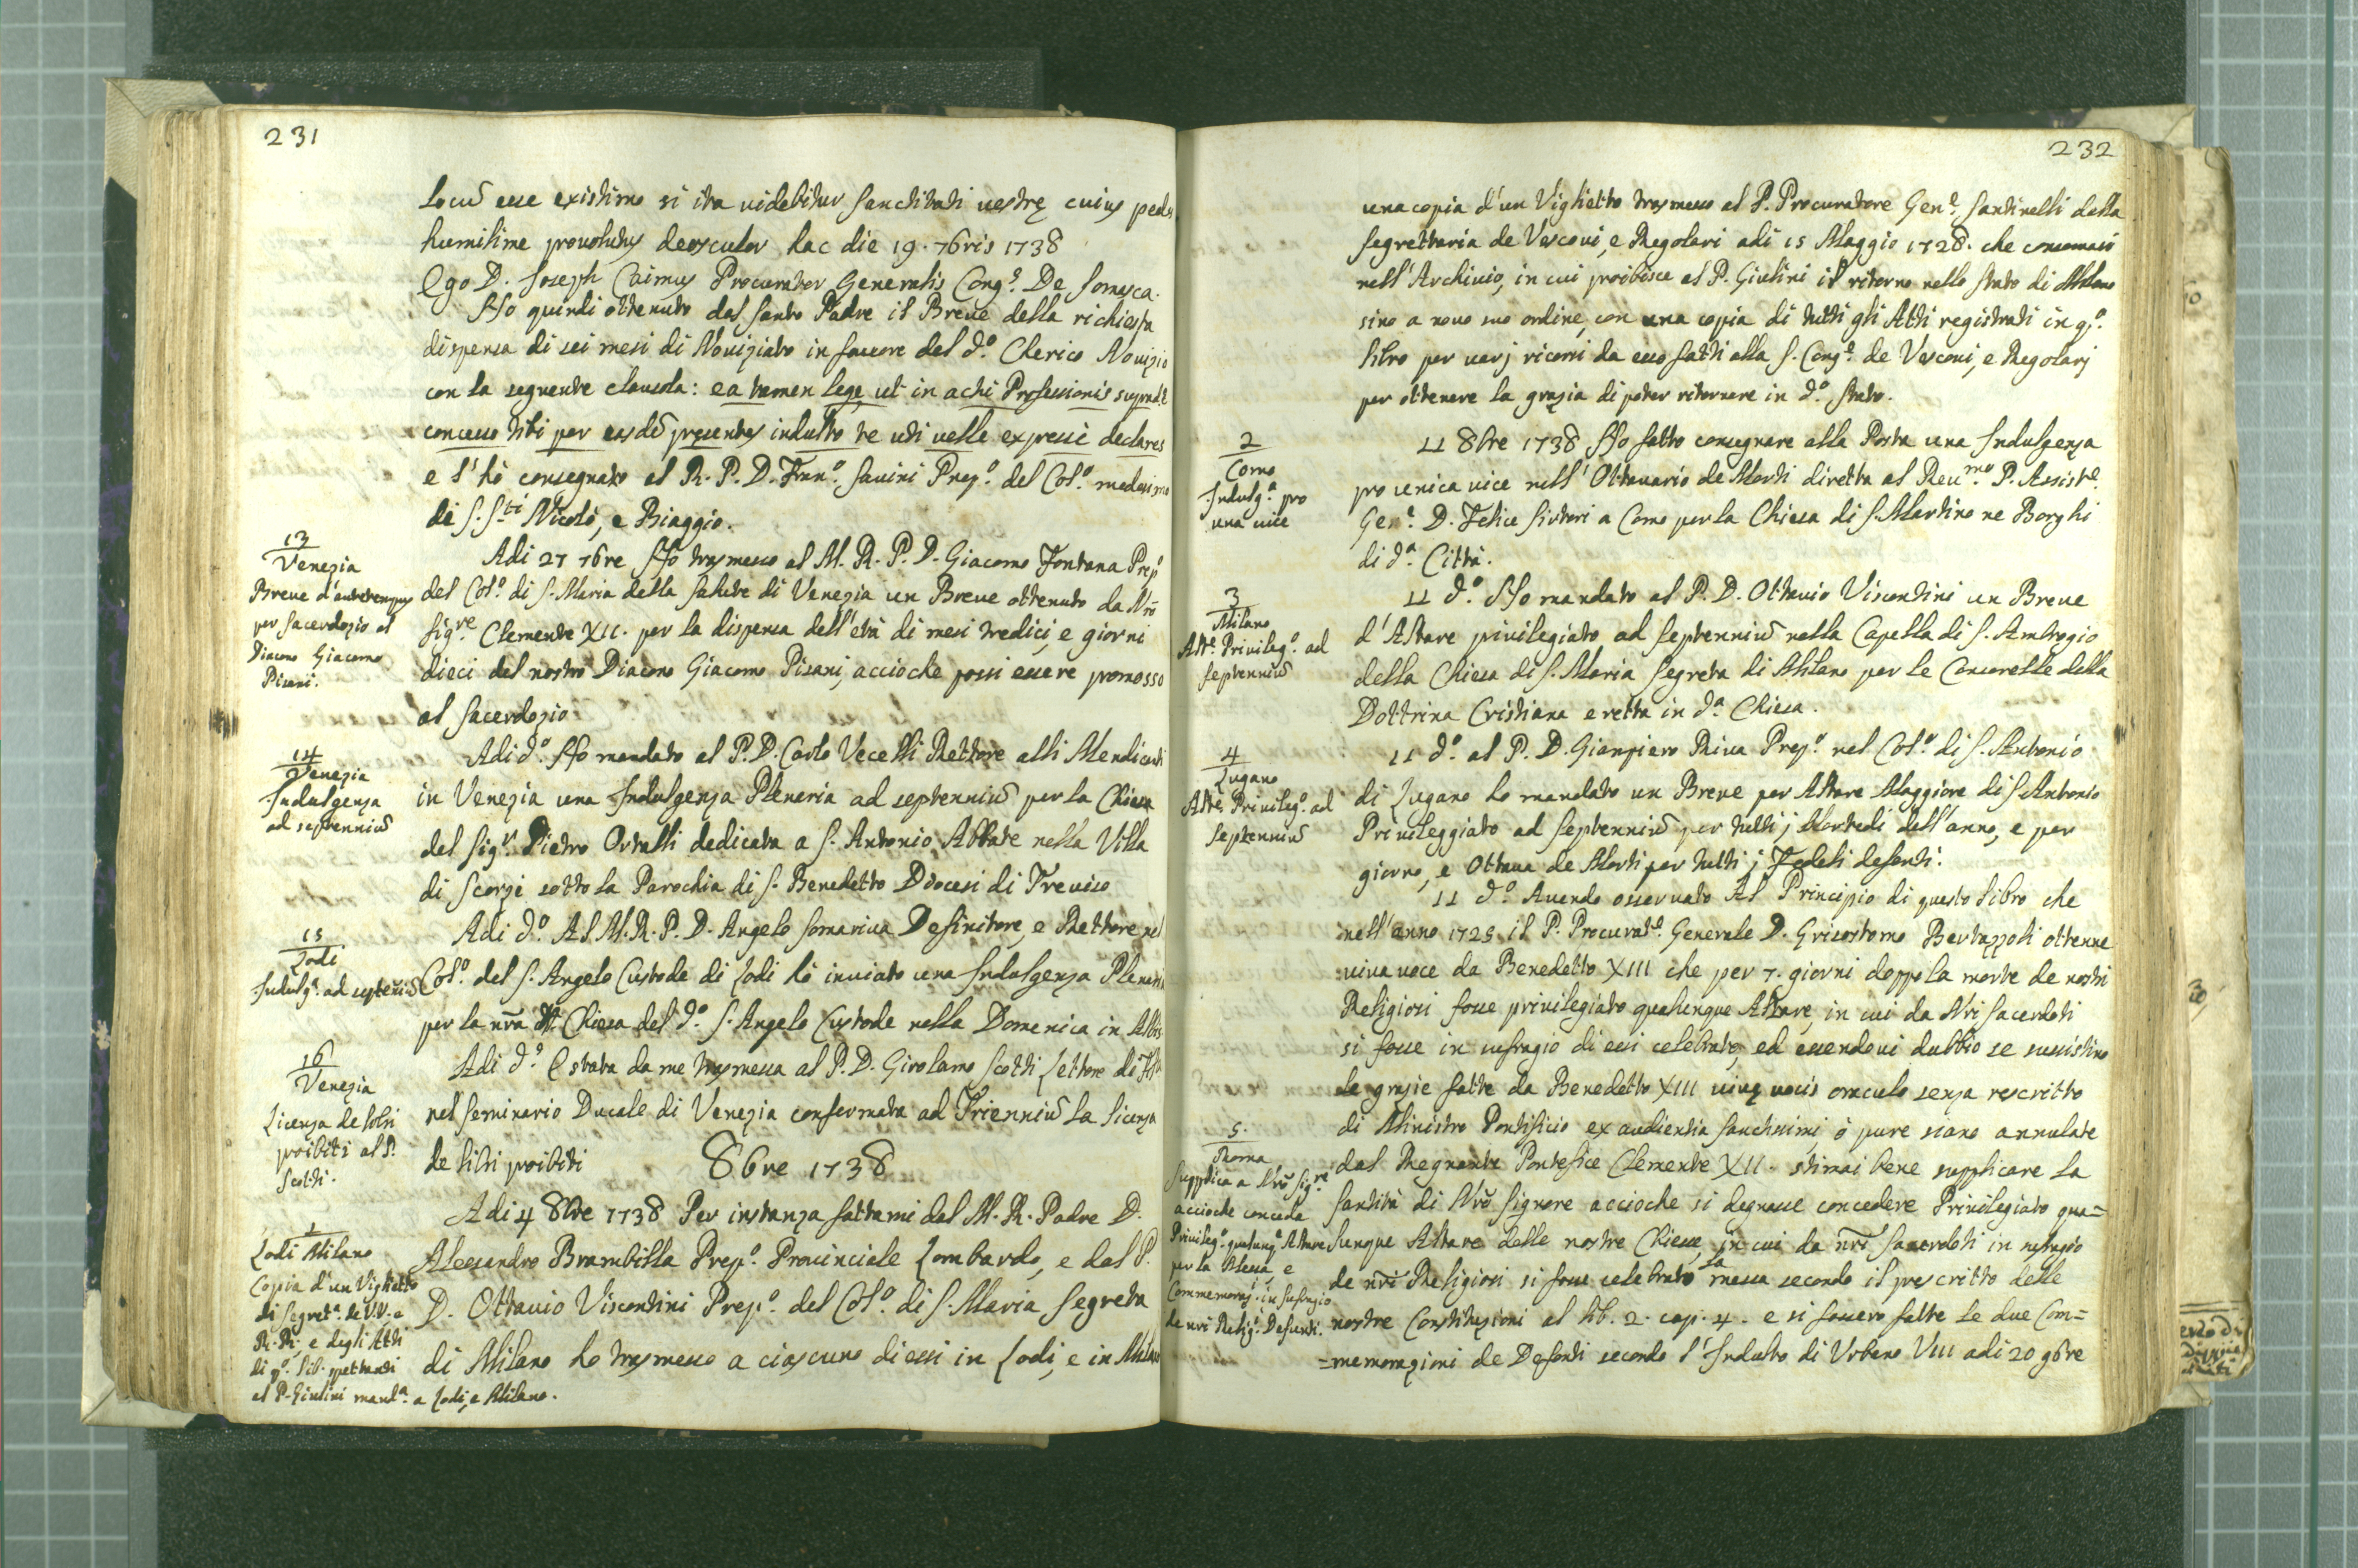 231
locũ esse existimo si ita videbitur Sanctitati vestrę cuius pedes
humilime provolutus deosculor hac die 19. 7bris 1738
Ego D. Joseph Caimus Procurator Generalis Cong.e De Somasca.
Ho quindi ottenuto dal Santo Padre il Breve della richiesta
dispensa di sei mesi di Noviziato in favore del d.o Clerico Novizio
con la seguente clausola: ea tamen lege ut in acti Professionis
concesso tibi per easdẽ presentes indulto te uti velle expressè declares
e l'hò consegnato al R. P. D. Fran.o Savini Prep.o del Col.o medesimo
di S. S.ti Nicolò, e Biaggio.
13
Venezia
Breve d'antetempus
per Sacerdozio al
Diacono Giacomo
Pisani.
Adi 27 7bre Ho trasmesso al M. R. P. D. Giacomo Fontana Prep.o
del Col.o di S. Maria della Salute di Venezia un Breve ottenuto da Nrõ
Sig.re Clemente XII. per la dispensa dell'età di mesi tredici, e giorni
dieci del nostro Diacono Giacomo Pisani, accioche possi essere promosso
al Sacerdozio
14
Venezia
Indulgenza
ad septenniũ
Adi d.o Ho mandato al P. D. Carlo Vecelli Rettore alli Mendicanti
in Venezia una Indulgenza Plenaria ad septenniũ per la Chiesa
del Sig.r Pietro Ortalli dedicata a S. Antonio Abbate nella Villa
di Scorzè sotto la Parochia di S. Benedetto Diocesi di Treviso
15
Lodi
Indulg.a ad septeniũ
Adi d.o Al M. R. P. D. Angelo Somariva Definitore, e Rettore nel
Col.o del S. Angelo Custode di Lodi hò inviato una Indulgenza Plenaria
per la nrã Chiesa del d.o S. Angelo Custode nella Domenica in Albis
16
Venezia
Licenza de libri
proibiti al P.
Scotti.
Adi d.o E stata da me trasmessa al P. D. Girolamo Scotti Lettore di
nel Seminario Ducale di Venezia confermata ad Trienniũ la licenza
de libri proibiti
8bre 1738
1
Lodi Milano
Copia d'un Viglietto
di Segret.a de V.V. e
R. R., e degli Atti
di q.o lib. spettanti
al P. Giulini mand.a a Lodi, e Milano.
Adi 4 8bre 1738 Per instanza fattami dal M. R. Padre D.
Alessandro Brambilla Prep.o Provinciale Lombardo, e dal P.
D. Ottavio Viscontini Prep.o del Col.o di S. Maria Segreta
di Milano ho trasmesso a ciascuno di essi in Lodi, e in Milano
232
una copia d'un Viglietto trasmesso al P. Procuratore Gen.e Santinelli dalla
Segrettaria de Vescovi, e Regolari adi 15 Maggio 1728. che conservasi
nell'Archivio, in cui proibisce al P. Giulini il ritorno nello Stato di Milano
sino a novo suo ordine, con una copia di tutti gli Atti registrati in q.o
libro per varj ricorsi da esso fatti alla S. Cong.e de Vescovi, e Regolarj
per ottenere la grazia di poter ritornare in d.o Stato.
2
Como
Indulg.a pro
una vice
11 8bre 1738 Ho fatto consegnare alla Posta una Indulgenza
pro unica vice nell'Ottavario de Morti diretta al Rev.mo P. Assist.e
Gen.e D. Felice Sirtori a Como per la Chiesa di S. Martino ne Borghi
di d.a Città.
3
Milano
Alt.e Privileg.o ad
septenniũ
11 d.o Ho mandato al P. D. Ottavio Viscontini un Breve
d'Altare privilegiato ad septenniũ nella Capella di S. Ambrogio
della Chiesa di S. Maria Segreta di Milano per le Consorelle della
Dottrina Cristiana eretta in d.a Chiesa.
4
Lugano
Alte Privileg.o ad
septenniũ
11 d.o al P. D. Gianpiero Riva Prep.o nel Col.o di S. Antonio
di Lugano ho mandato un Breve per Altare Maggiore di S Antonio
Privileggiato ad septenniũ per tutti j Martedì dell'anno, e per
giorno, e Ottava de Morti per tutti j Fedeli defonti.
11 d.o Avendo osservato Al Principio di questo libro che
nell'anno 1725 il P. Procurat.e Generale D. Grisostomo Bertazzoli ottenne
viva voce da Benedetto XIII che per 7. giorni doppo la morte de nostri
Religiosi fosse privilegiato qualunque Altare, in cui da Nri Sacerdoti
si fosse in sufragio di essi celebrato, ed essendovi dubbio se sussistino
le grazie fatte da Benedetto XIII vivę vocis oraculo senza rescritto
di Ministro Pontificio ex audientia Sanctissimi ò pure siano annulate
5.
Roma
Supplica a Nrõ Sig.re
accioche conceda
Privileg.o qualunq. Altare
per la Messa, e
Commemoraz. in sufragio
de nri Relig.i Defunti.
dal Regnante Pontefice Clemente XII. stimai bene supplicare la
Santità di Nrõ Signore accioche si degnasse concedere Privilegiato qua=
lunque Altare delle nostre Chiese, in cui da nri Sacerdoti in sufragio
de nri Religiosi si fosse celebrato la messa secondo il prescritto delle
nostre Constituzioni al lib. 2. cap. 4. e si fossero fatte le due Com=
=memorazioni de Defonti secondo l'Indulto di Urbano VIII adi 20 9bre